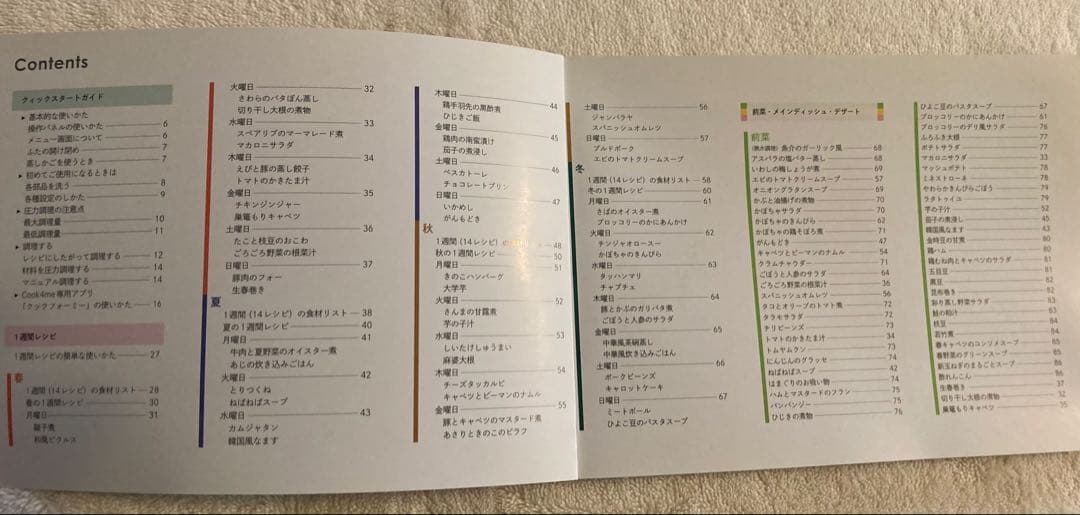 Contents
クイックスタートガイド
▶ 基本的な使いかた
操作パネルの使いかた 6
メニュー画面について 6
ふたの開け閉め 7
蒸しかごを使うとき 7
▶ 初めてご使用になるときは
各部品を洗う 8
各種設定のしかた 9
▶ 圧力調理の注意点
最大調理量 10
最低調理量 11
▶ 調理する
レシピにしたがって調理する 12
材料を圧力調理する 14
マニュアル調理する 14
▶ Cook4me専用アプリ
「クックフォーミー」の使いかた 16
1週間レシピ
1週間レシピの簡単な使いかた 27
春
1週間(14レシピ)の食材リスト 28
春の1週間レシピ 30
月曜日 31
鶏子煮
和風ピクルス
火曜日 32
さわらのバタぽん蒸し
切り干し大根の煮物
水曜日 33
スペアリブのマーマレード煮
マカロニサラダ
木曜日 34
えびと豚の蒸し餃子
トマトのかきたま汁
金曜日 35
チキンジンジャー
巣篭もりキャベツ
土曜日 36
たこと枝豆のおこわ
ごろごろ野菜の根菜汁
日曜日 37
豚肉のフォー
生春巻き
夏
1週間(14レシピ)の食材リスト 38
夏の1週間レシピ 40
月曜日 41
牛肉と夏野菜のオイスター煮
あじの炊き込みごはん
火曜日 42
とりつくね
ねばねばスープ
水曜日 43
カムジャタン
韓国風なます
木曜日 44
鶏手羽先の黒酢煮
ひじきご飯
金曜日 45
鶏肉の南蛮漬け
茄子の煮浸し
土曜日 46
ペスカトーレ
チョコレートプリン
日曜日 47
いかめし
がんもどき
秋
1週間(14レシピ)の食材リスト 48
秋の1週間レシピ 50
月曜日 51
きのこハンバーグ
大学芋
火曜日 52
さんまの甘露煮
芋の子汁
水曜日 53
しいたけしゅうまい
麻婆大根
木曜日 54
チーズタッカルビ
キャベツとピーマンのナムル
金曜日 55
豚とキャベツのマスタード煮
あさりときのこのピラフ
土曜日 56
ジャンバラヤ
スパニッシュオムレツ
日曜日 57
プルドポーク
エビのトマトクリームスープ
冬
1週間(14レシピ)の食材リスト 58
冬の1週間レシピ 60
月曜日 61
さばのオイスター煮
ブロッコリーのかにあんかけ
火曜日 62
チンジャオロースー
かぼちゃのきんぴら
水曜日 63
タッハンマリ
チャプチェ
木曜日 64
豚とかぶのガリバタ煮
ごぼうと人参のサラダ
金曜日 65
中華風茶碗蒸し
中華風炊き込みごはん
土曜日 66
ポークビーンズ
キャロットケーキ
日曜日 67
ミートボール
ひよこ豆のパスタスープ
前菜・メインディッシュ・デザート
前菜
(無水調理)魚介のガーリック風 68
アスパラの塩バター蒸し 68
いわしの梅しょうが煮 69
エビのトマトクリームスープ 57
オニオングラタンスープ 69
かぶと油揚げの煮物 70
かぼちゃサラダ 70
かぼちゃのきんぴら 62
かぼちゃの鶏そぼろ煮 71
がんもどき 47
キャベツとピーマンのナムル 54
クラムチャウダー 71
ごぼうと人参のサラダ 64
ごろごろ野菜の根菜汁 36
スパニッシュオムレツ 56
タコとオリーブのトマト煮 72
タラモサラダ 72
チリビーンズ 73
トマトのかきたま汁 34
トムヤムクン 73
にんじんのグラッセ 74
ねばねばスープ 42
はまぐりのお吸い物 74
ハムとマスタードのフラン 75
バンバンジー 75
ひじきの煮物 76
ひよこ豆のパスタスープ 67
ブロッコリーのかにあんかけ 61
ブロッコリーのデリ風サラダ 76
ふろふき大根 77
ポテトサラダ 77
マカロニサラダ 33
マッシュポテト 78
ミネストローネ 78
やわらかきんぴらごぼう 79
ラタトゥイユ 79
芋の子汁 52
茄子の煮浸し 45
韓国風なます 43
金時豆の甘煮 80
鶏ハム 80
鶏むね肉とキャベツのサラダ 81
五目豆 81
黒豆 82
昆布巻き 82
彩り蒸し野菜サラダ 83
鮭の粕汁 83
枝豆 84
若竹煮 84
春キャベツのコンソメスープ 85
春野菜のグリーンスープ 85
新玉ねぎのまるごとスープ 86
酢れんこん 86
生春巻き 37
切り干し大根の煮物 32
巣篭もりキャベツ 35